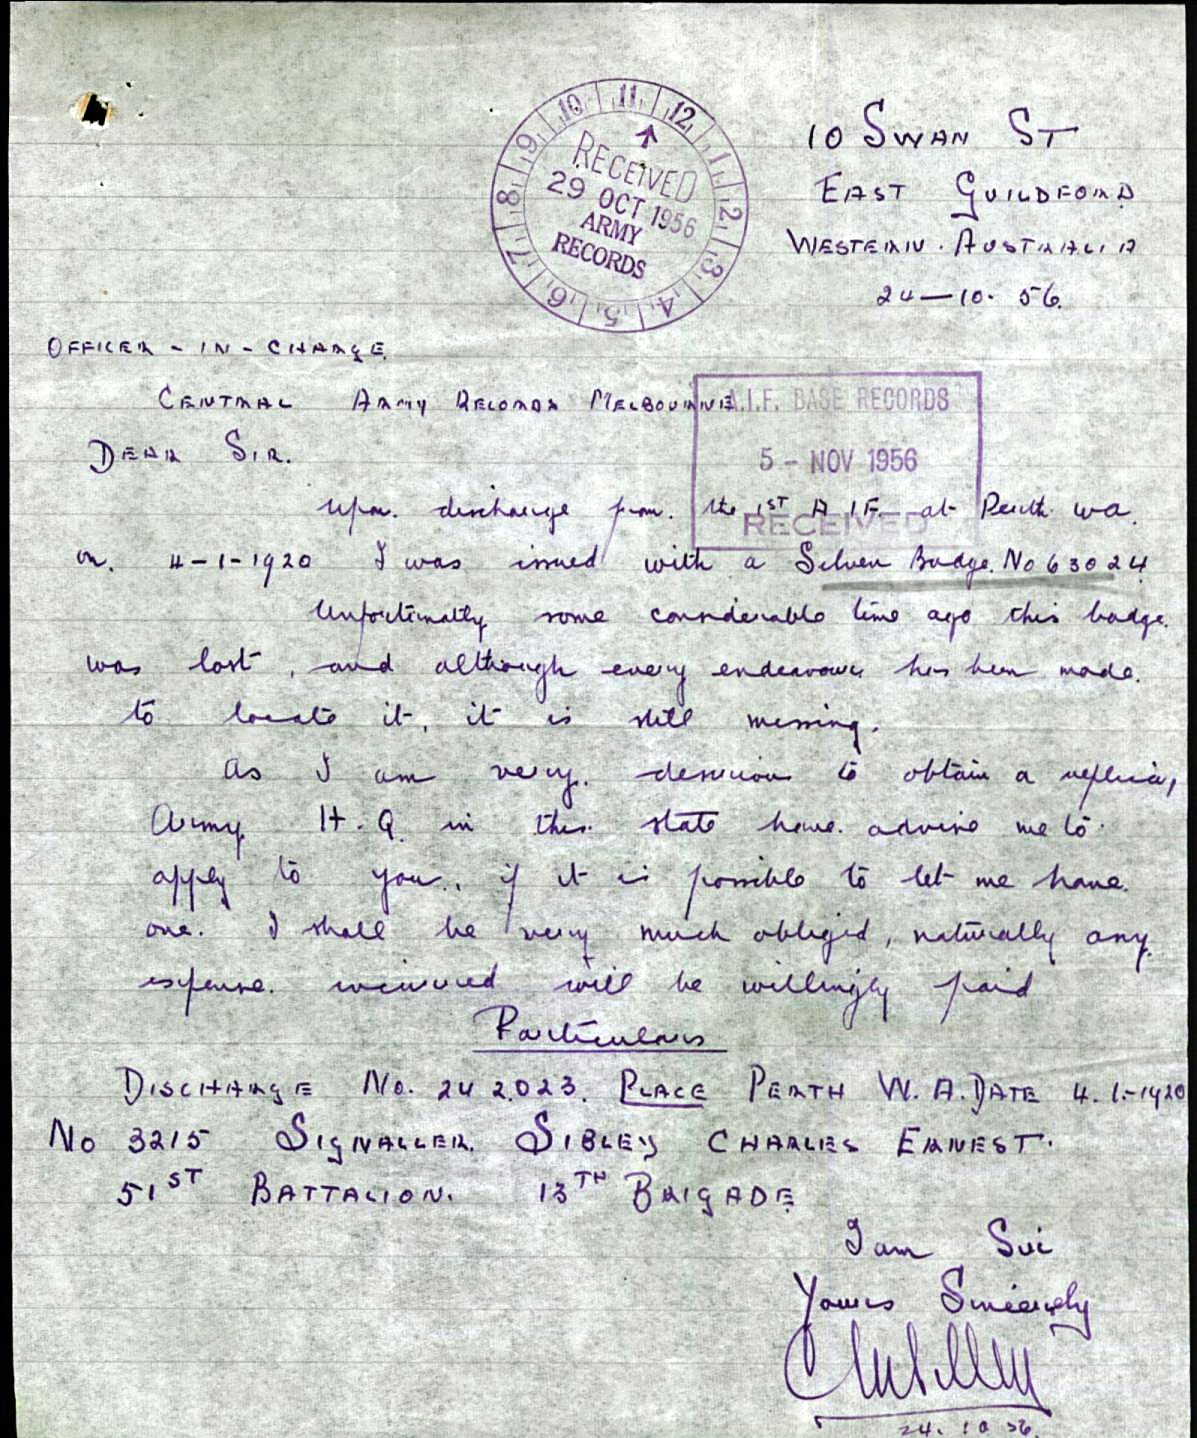 10 SWAN ST
EAST GUILDFORD
WESTERN. AUSTRALIA
24-10. 56.
12 1 2 3 4 5 6 7 8 9 10 11
RECEIVED
29 OCT 1956
ARMY
RECORDS
OFFICER - IN - CHARGE.
CENTRAL ARMY RECORDS MELBOURNE
A.I.F. BASE RECORDS
5 - NOV 1956
RECEIVED
DEAR SIR.
Upon. discharge from. the 1ST A I F. at Perth wa.
on. 4-1-1920 I was issued with a Silver Badge. No 63024
Unfortinatly some considerable time ago this badge.
was lost, and although every endeavour has been made.
to locate it, it is still missing.
As I am very. desirious to obtain a replica,
Army H.Q. in this. state have. advise me to.
apply to you., if it is possible to let me have.
one. I shall be very much obliged, naturally any.
expense. incurred will be willingly paid
Particulars
DISCHARGE No. 242023. PLACE PERTH W.A. DATE 4.1.-1920
No 3215 SIGNALLER. SIBLEY CHARLES ERNEST.
51ST BATTALION. 13TH BRIGADE
I am Sir
Yours Sincerely
24. 10 56.